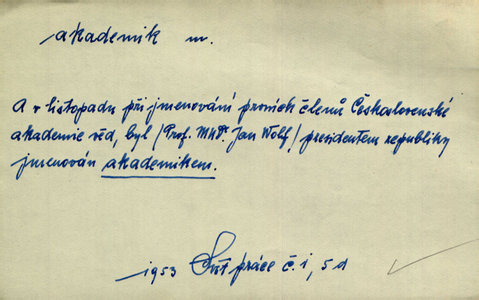 akademik m.
A v listopadu při jmenování prvních členů Československé
akademie věd, byl /Prof. MUDr. Jan Wolf/ presidentem republiky
jmenován akademikem.
1953 práce č. 1, 5 d